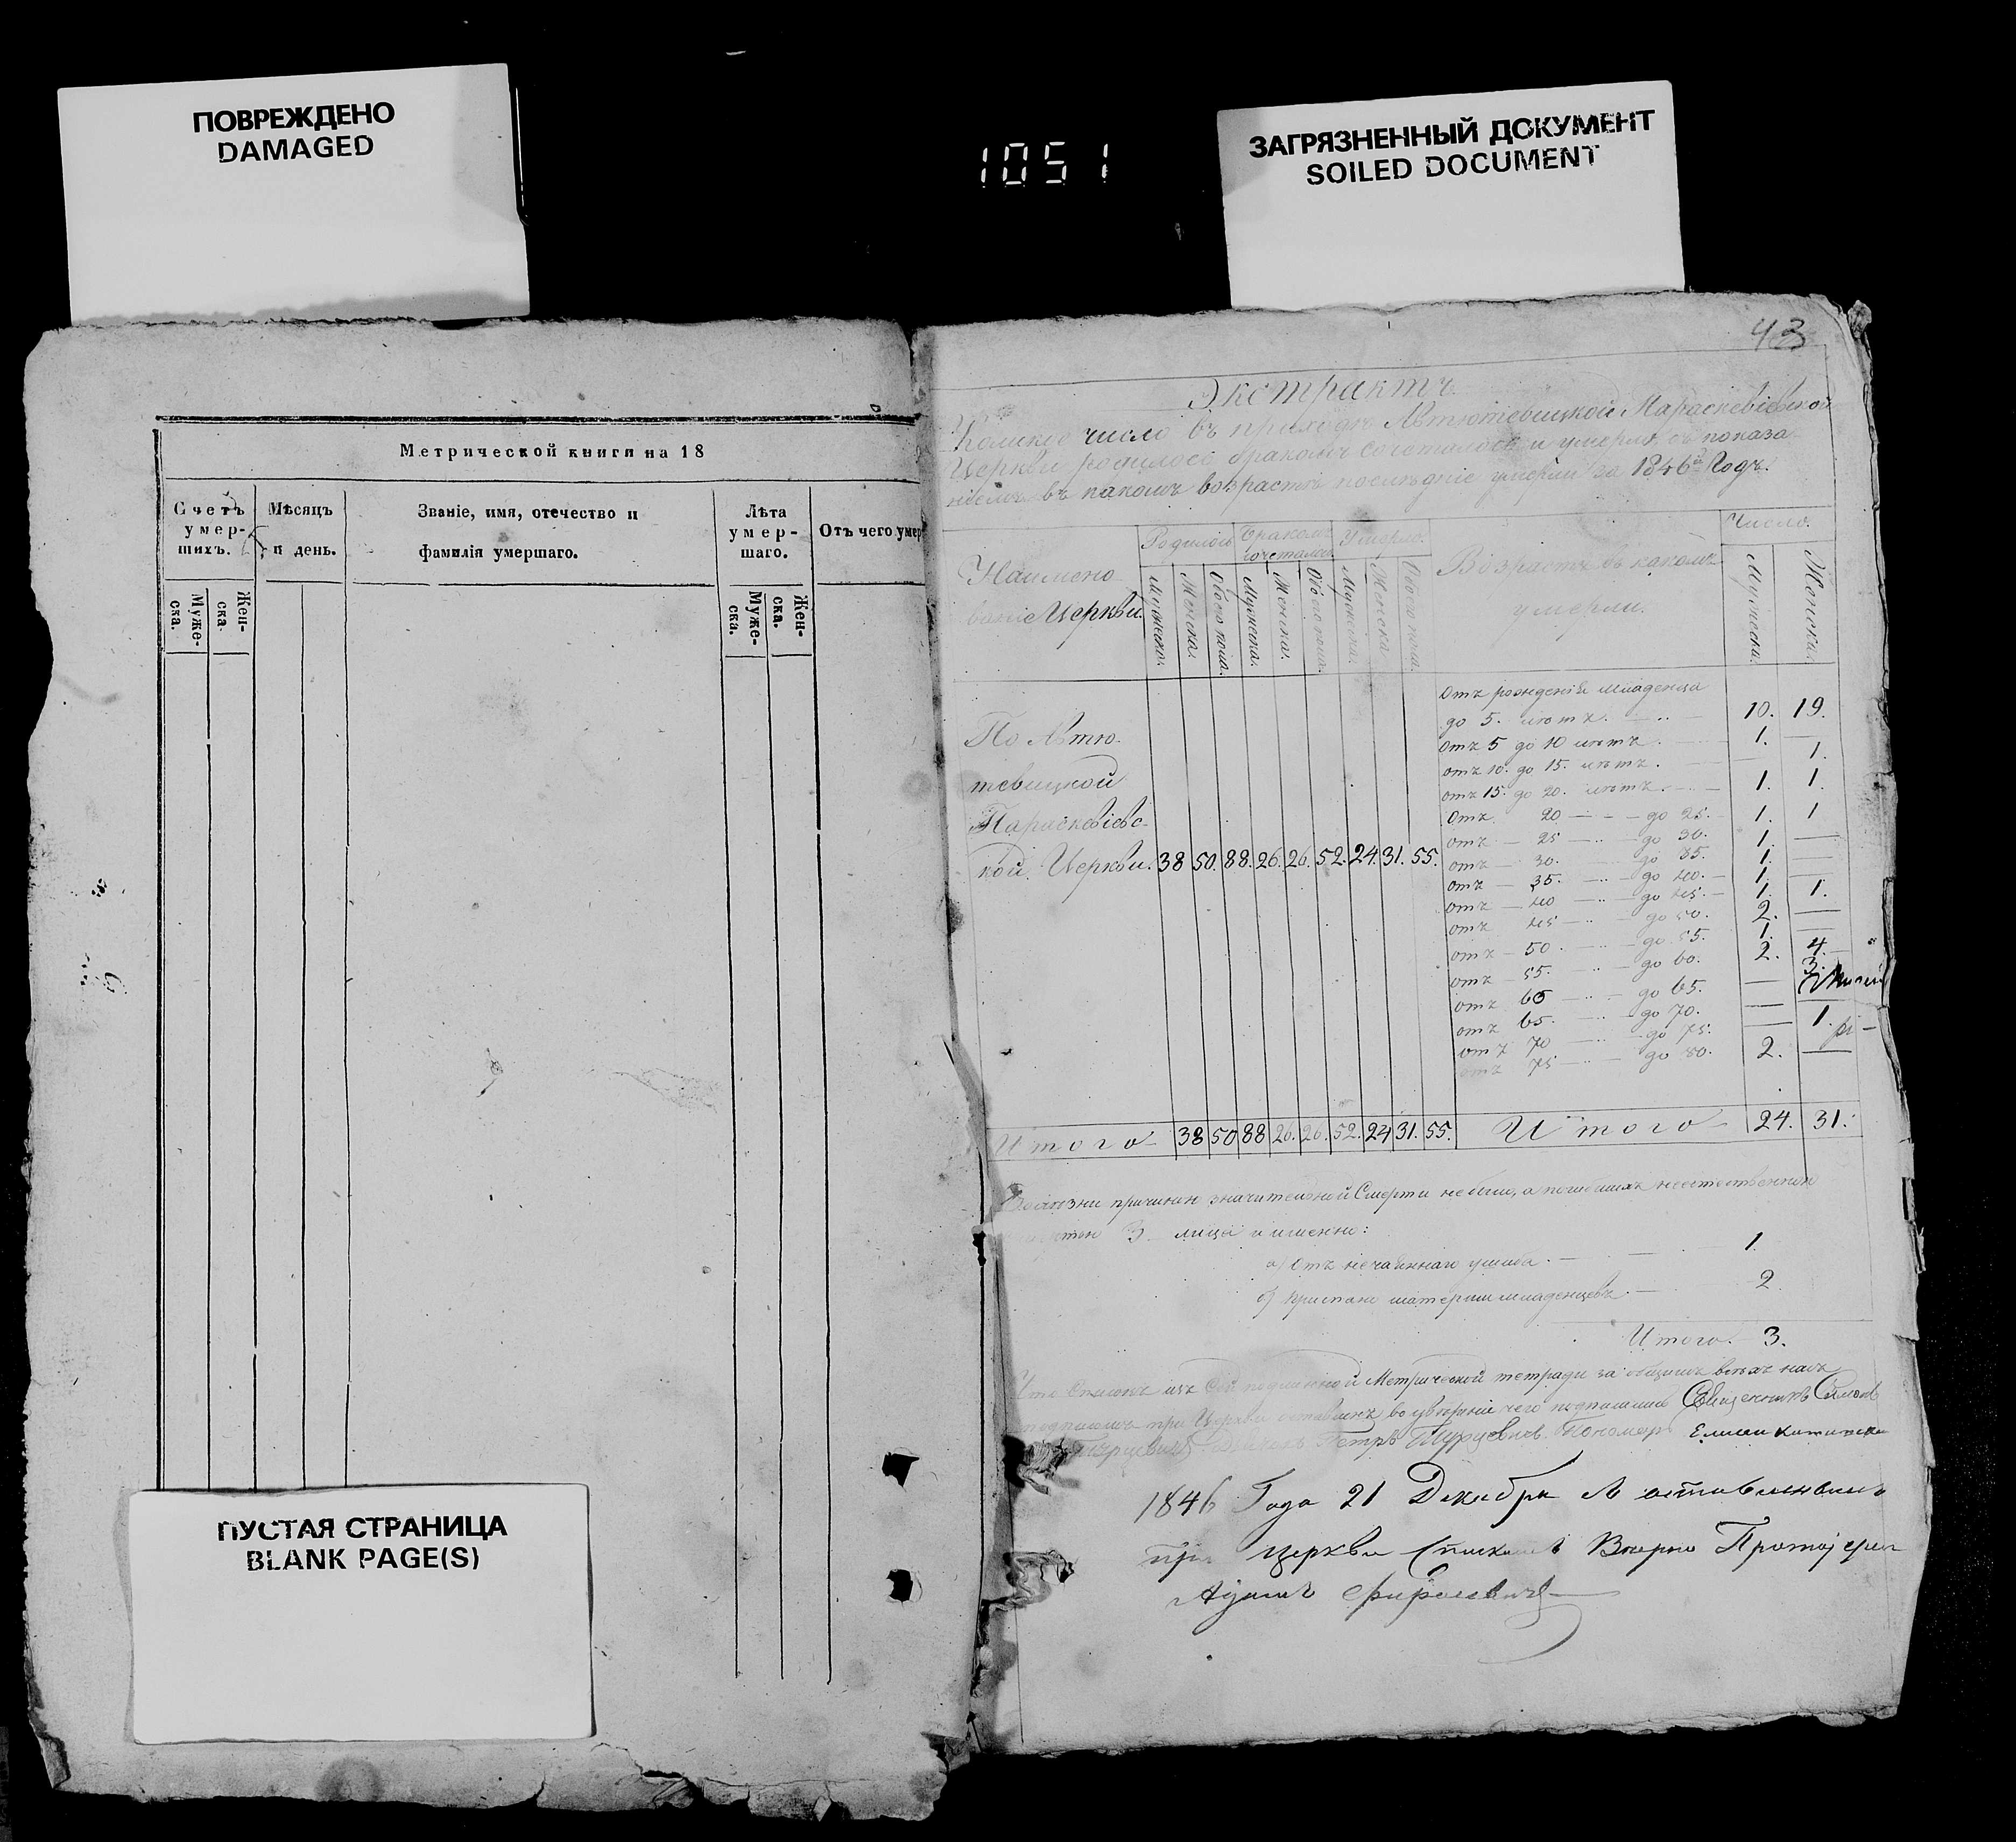 ПОВРЕЖДЕНО
DAMAGED
1051
ЗАГРЯЗНЕННЫЙ ДОКУМЕНТ
SOILED DOCUMENT
Метрической книги на 18
Счетъ умер- шихъ.
Мѣсяцъ и день.
Званіе, имя, отечество и
фамилія умершаго.
Лѣта умер- шаго.
Отъ чего умер
Муже- ска.
Жен- ска.
Муже- ска.
Жен- ска.
ПУСТАЯ СТРАНИЦА
BLANK PAGE(S)
43
Экстрактъ
число въ приходѣ Автютевицкой Параскевіевской
Церкви родилось бракомъ сочеталось и умерло, съ показа-
ніемъ въ какомъ возрастѣ послѣдніе умерли за 1846й Годъ.
Наимено
ваніе Церкви.
Родилось
Бракомъ сочеталось
Умерло.
Возрастъ въ какомъ
умерли.
Число.
Мужеска. Женска. Обоего пола. Мужеска. Женска. Обоего пола. Мужеска. Женска. Обоего пола.
Мужеска. Женска.
По Автю-
тевицкой
Параскевіевс-
кой Церкви. 38 50. 88. 26. 26. 52. 24. 31. 55.
Отъ рожденія младенца
до 5. лѣтъ. 10. 19.
отъ 5 до 10 лѣтъ. 1. —
отъ 10. до 15. лѣтъ. — 1.
отъ 15. до 20. лѣтъ. 1. 1.
отъ 20 — до 25. 1. 1
отъ — 25 — до 30. 1. —
отъ — 30. до 35. 1. —
отъ — 35. — до 40. 1. —
отъ — 40 — до 45. 1. 1.
отъ 45 — до 50. 2. —
отъ — 50. — до 55. 1. —
отъ — 55. — до 60. 2. 4.
отъ 60 — до 65. — 3.
отъ 65. — до 70. —
отъ 70 — до 75. — 1.
отъ 75 — до 80. 2. —
Итого 38 50 88 26. 26. 52. 24 31. 55. Итого 24. 31.
Болѣзни причиною значительной Смерти не было, а погибшихъ неестественною
3 лица и именно:
а) Отъ нечаяннаго ушиба. — 1.
б) Приспано матерями младенцевъ. — 2
Итого. 3.
Списокъ изъ подлинной Метрической тетради за общимъ всѣхъ насъ
подписомъ при Церкви оставленъ, во увѣреніе чего подписались Священникъ
Петръ Турцевичъ Пономарь
1846 Года 21 Декабря оставленнымъ
при церкви Спискомъ Вѣрно Протоіерей
Адамъ